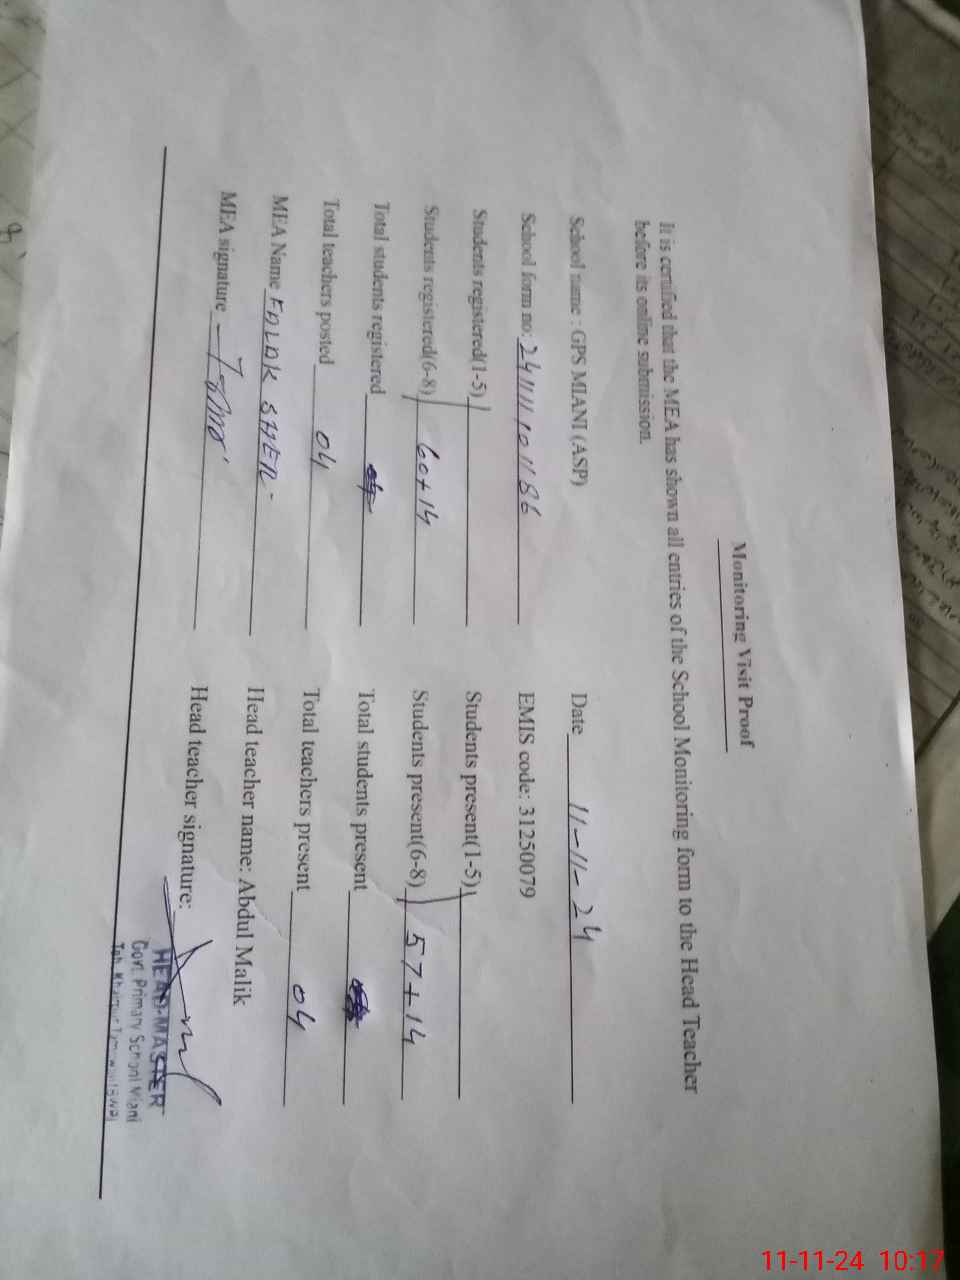 Monitoring Visit Proof
It is certified that the MEA has shown all entries of the School Monitoring form to the Head Teacher
before its online submission.
School name : GPS MIANI (ASP) Date 11-11-24
School form no: 241111101186 EMIS code: 31250079
Students registered(1-5) Students present(1-5)
Students registered(6-8) 60+14 Students present(6-8) 57+14
Total students registered Total students present
Total teachers posted 04 Total teachers present 04
MEA Name SHER Head teacher name: Abdul Malik
MEA signature Head teacher signature:
HEAD MASTER
Govt. Primary School Miani
Teh. Khairpur Tamewali
11-11-24 10:17